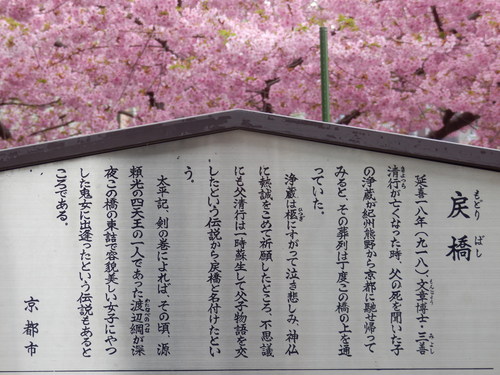 戻橋
もどり ばし
延喜一八年(九一八)、文章博士・三善
清行が亡くなった時、父の死を聞いた子
の浄蔵が紀州熊野から京都に馳せ帰って
みると、その葬列は丁度この橋の上を通
っていた。
浄蔵は柩にすがって泣き悲しみ、神仏
に熱誠をこめて祈願したところ、不思議
にも父清行は一時蘇生して父子物語を交
したという伝説から戻橋と名付けたとい
う。
太平記、剣の巻によれば、その頃、源
頼光の四天王の一人であった渡辺綱が深
夜この橋の東詰で容貌美しい女子にやつ
した鬼女に出逢ったという伝説もあると
ころである。
京都市